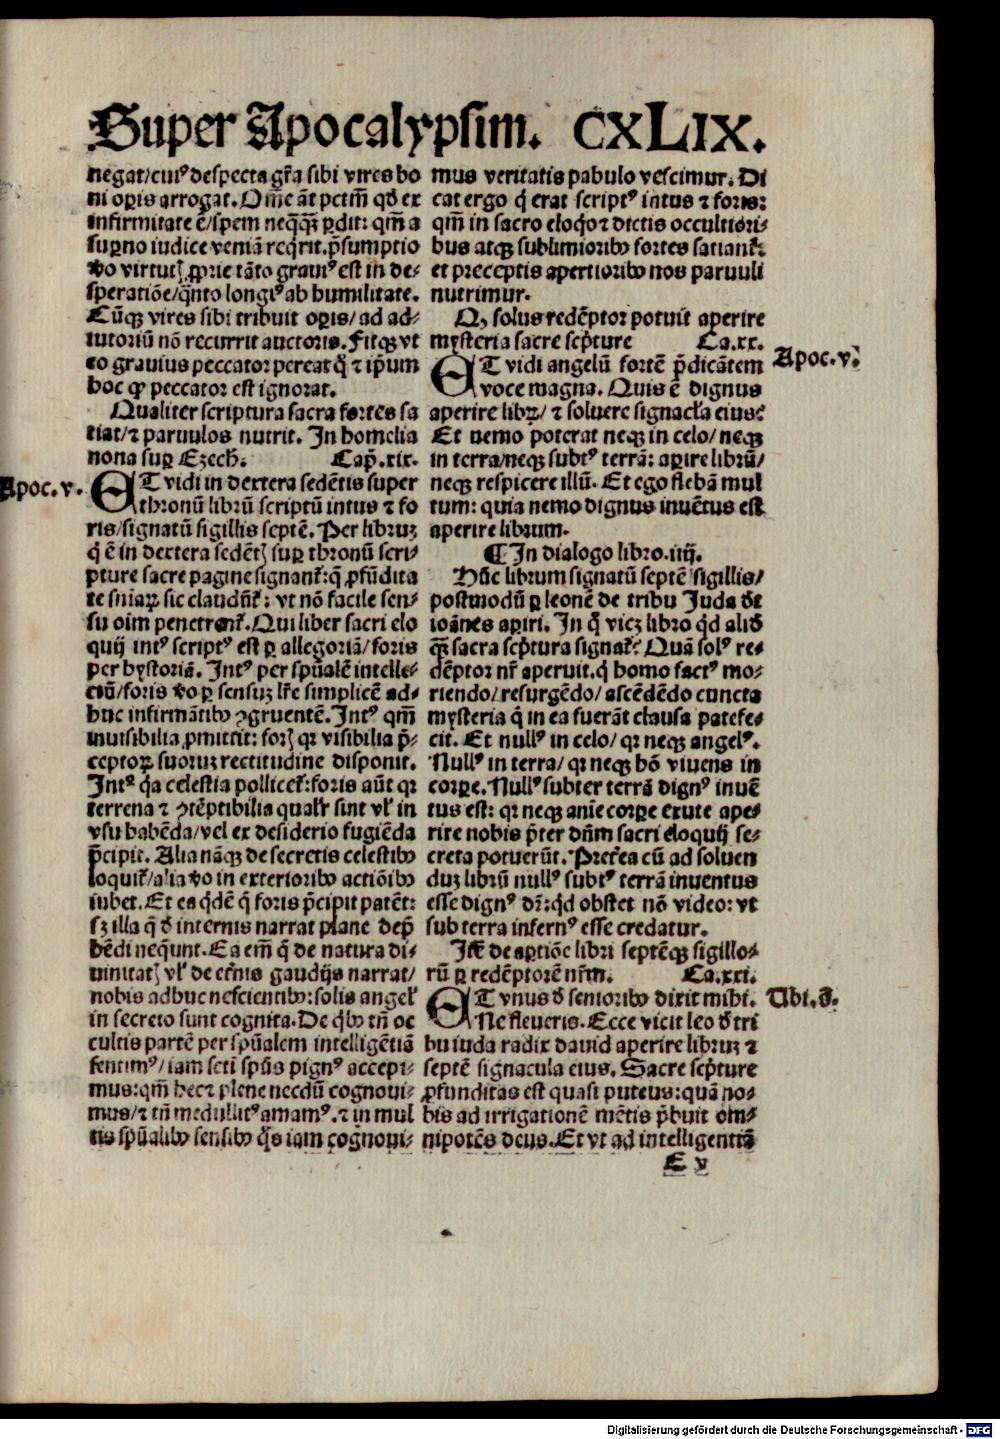 Super Apocalypsim. CXLIX.
negat/cuiꝰ despecta gr̃a sibi vires bo
ni oꝑis arrogat. Om̃e ãt pctm̃ qd̕ ex
infirmitate ẽ/spem neq̃q̃ꝫ ꝑdit: qm̃ a
suꝑno iudice veniã req̇rit. p̃sumptio
ṽo virtutꝭ ꝓprie tãto grauiꝰ est in de-
speratiõe/q̃nto longiꝰ ab humilitate.
Cũqꝫ vires sibi tribuit oꝑis/ad ad-
iutoriũ nõ recurrit auctoris. Fitqꝫ vt
eo grauius peccator pereat q̃ ⁊ ip̃um
hoc ꝙ peccator est ignorat.
Qualiter scriptura sacra fortes sa
tiat/⁊ paruulos nutrit. In homelia
nona suꝑ Ezech̃. Cap̃.xix.
Apoc.v. ET vidi in dextera sedẽtis super
thronũ librũ scriptũ intus ⁊ fo
ris/signatũ sigillis septẽ. Per libruꝫ
q̇ ẽ in dextera sedẽtꝭ suꝑ thronũ scri-
pture sacre pagine signant̃: q̃ ꝓfũdita
te sniaꝝ sic claudũt̃: vt nõ facile sen-
su oim penetrent̃. Qui liber sacri elo
quij intꝰ scriptꝰ est ꝑ allegoriã/foris
per hystoriã. Intꝰ per spũalẽ intelle-
ctũ/foris ṽo ꝑ sensuꝫ lr̃e simplicẽ ad-
huc infirmãtibꝰ ꝯgruentẽ. Intꝰ qm̃
inuisibilia ꝓmittit: forꝭ qꝛ visibilia p̃-
ceptoꝝ suoruꝫ rectitudine disponit.
Intꝰ q̇a celestia pollicet̃: foris aũt qꝛ
terrena ⁊ ꝯtẽptibilia qualr̃ sint vl̃ in
vsu habẽda/vel ex desiderio fugiẽda
p̃cipit. Alia nãqꝫ de secretis celestibꝰ
loquit̃/alia ṽo in exterioribꝰ actiõibꝰ
iubet. Et ea q̇dẽ q̃ foris p̃cipit patẽt:
sꝫ illa q̃ d̕ internis narrat plane dep̃
hẽdi neq̃unt. Ea em̃ q̃ de natura di-
uinitatꝭ vl̃ de etñis gaudijs narrat/
nobis adhuc nescientibꝰ: solis angel̃
in secreto sunt cognita. De q̇bꝰ tñ oc
cultis partẽ per spũalem intelligẽtiã
sentimꝰ/iam scti spũs pignꝰ accepi-
mus: qm̃ hec ⁊ plene necdũ cognoui-
mus/⁊ tñ medullitꝰ amamꝰ. ⁊ in mul
tis spũalibꝰ sensibꝰ q̇s iam cognoui-
mus veritatis pabulo vescimur. Di
cat ergo q̇ erat scriptꝰ intus ⁊ foris:
qm̃ in sacro eloq̇o ⁊ dictis occultiori-
bus atqꝫ sublimioribꝰ fortes satiant̃.
et preceptis apertioribꝰ nos paruuli
nutrimur.
Qꝫ solus redẽptor potuit aperire
mysteria sacre scp̃ture Ca.xx.
ET vidi angelũ fortẽ p̃dicãtem Apoc.v.
voce magna. Quis ẽ dignus
aperire libꝝ/⁊ soluere signacl̃a eius?
Et nemo poterat neqꝫ in celo/neqꝫ
in terra/neqꝫ subtꝰ terrã: aꝑire librũ/
neqꝫ respicere illũ. Et ego flebã mul
tum: quia nemo dignus inuẽtus est
aperire librum.
¶ In dialogo libro.iiij.
Hũc librum signatũ septẽ sigillis/
postmodũ ꝑ leonẽ de tribu Juda d̃t
ioãnes aꝑiri. In q̇ viꝫ libro q̇d aliđ
q̃ꝫ sacra scp̃tura signat̃? Quã solꝰ re-
dẽptor nr̃ aperuit. q̇ homo factꝰ mo-
riendo/resurgẽdo/ascẽdẽdo cuncta
mysteria q̃ in ea fuerãt clausa patefe-
cit. Et nullꝰ in celo/qꝛ neqꝫ angelꝰ.
Nullꝰ in terra/qꝛ neqꝫ hõ viuens in
corꝑe. Nullꝰ subter terrã dignꝰ inuẽ
tus est: qꝛ neqꝫ anie corꝑe exute ape-
rire nobis p̃ter dñm sacri eloquij se-
creta potuerũt. Pret̃ea cũ ad soluen
duꝫ librũ nullꝰ subtꝰ terrã inuentus
esse dignꝰ dr̃: q̇d obstet nõ video: vt
sub terra infernꝰ esse credatur.
Itẽ de aꝑtiõe libri septẽqꝫ sigillo-
rũ ꝑ redẽptorẽ nr̃m. Ca.xxi.
ET vnus d̕ senioribꝰ dixit mihi. Vbi.s̃.
Ne fleueris. Ecce vicit leo d̕ tri
bu iuda radix dauid aperire libruꝫ ⁊
septẽ signacula eius. Sacre scp̃ture
ꝓfunditas est quasi puteus: quã no-
bis ad irrigationẽ mẽtis p̃buit om-
nipotẽs deus. Et vt ad intelligentiã
E v
Digitalisierung gefördert durch die Deutsche Forschungsgemeinschaft - DFG